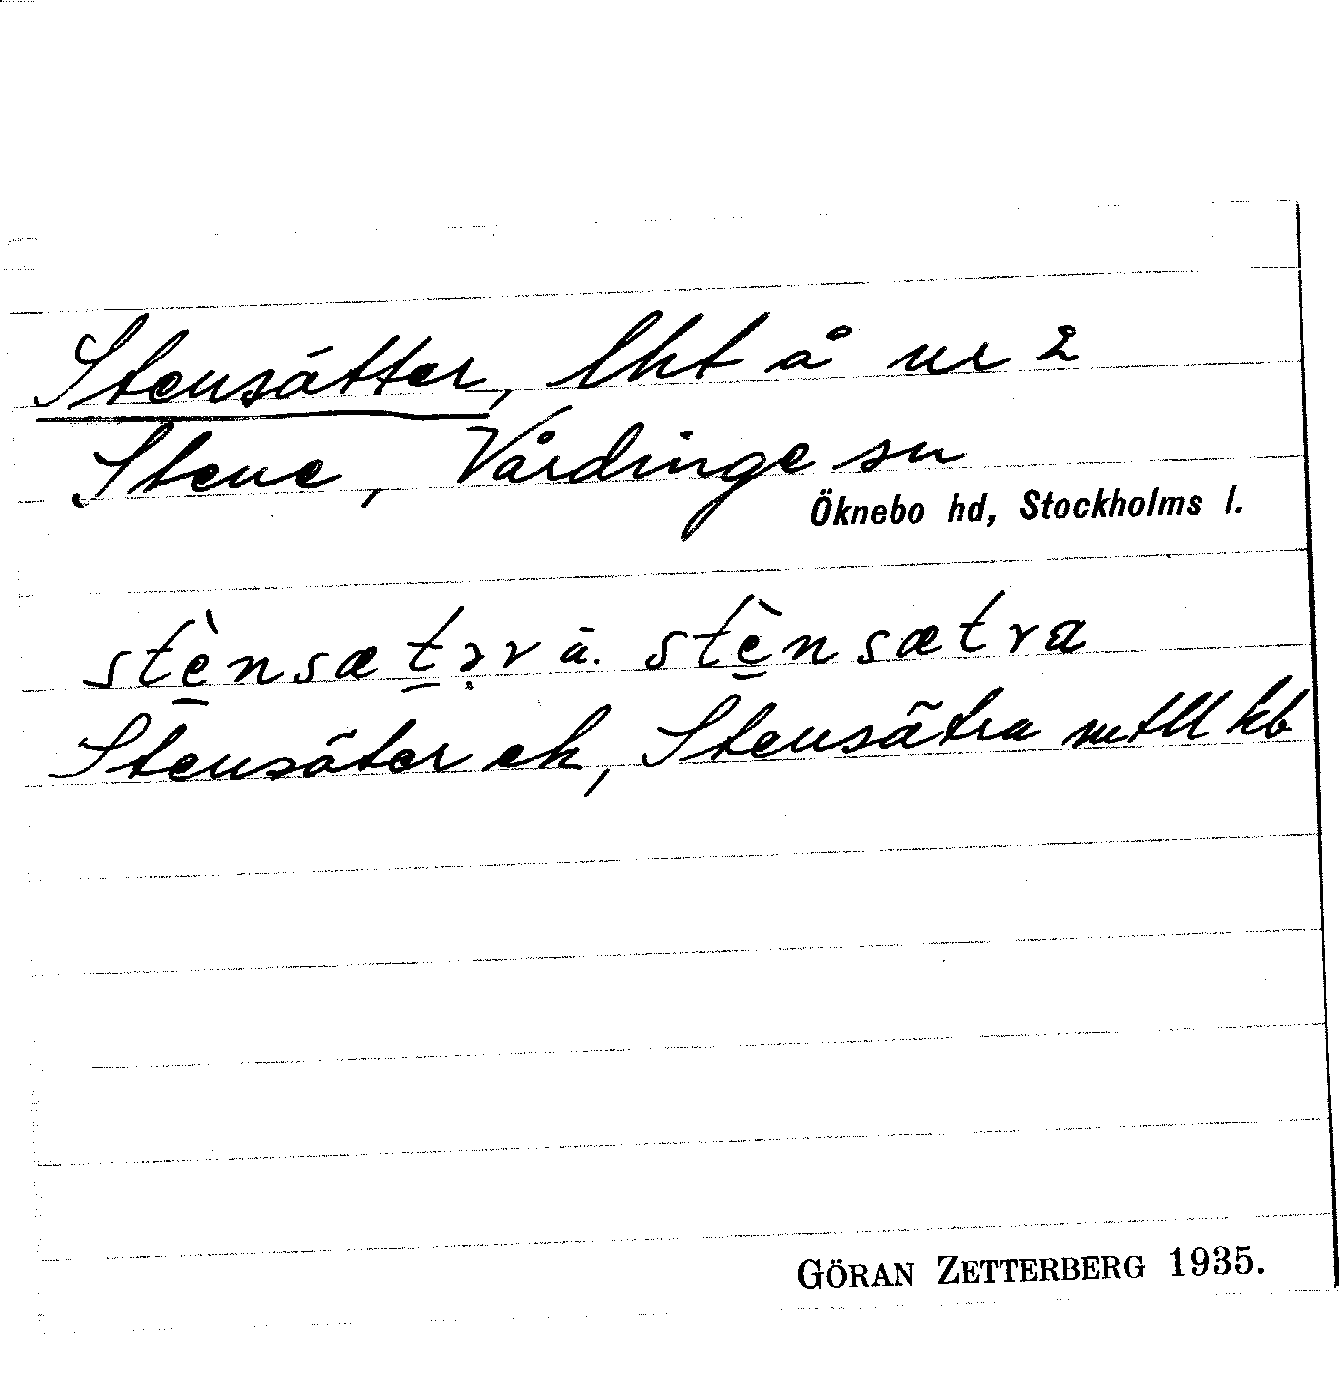 Stensätter, lht å nr 2
Stene, Vårdinge sn
Öknebo hd, Stockholms l.
stè̱nsæṯə̣r ä. stè̱nsætra
Stensäter ek, Stensätra mtll kb
GÖRAN ZETTERBERG 1935.